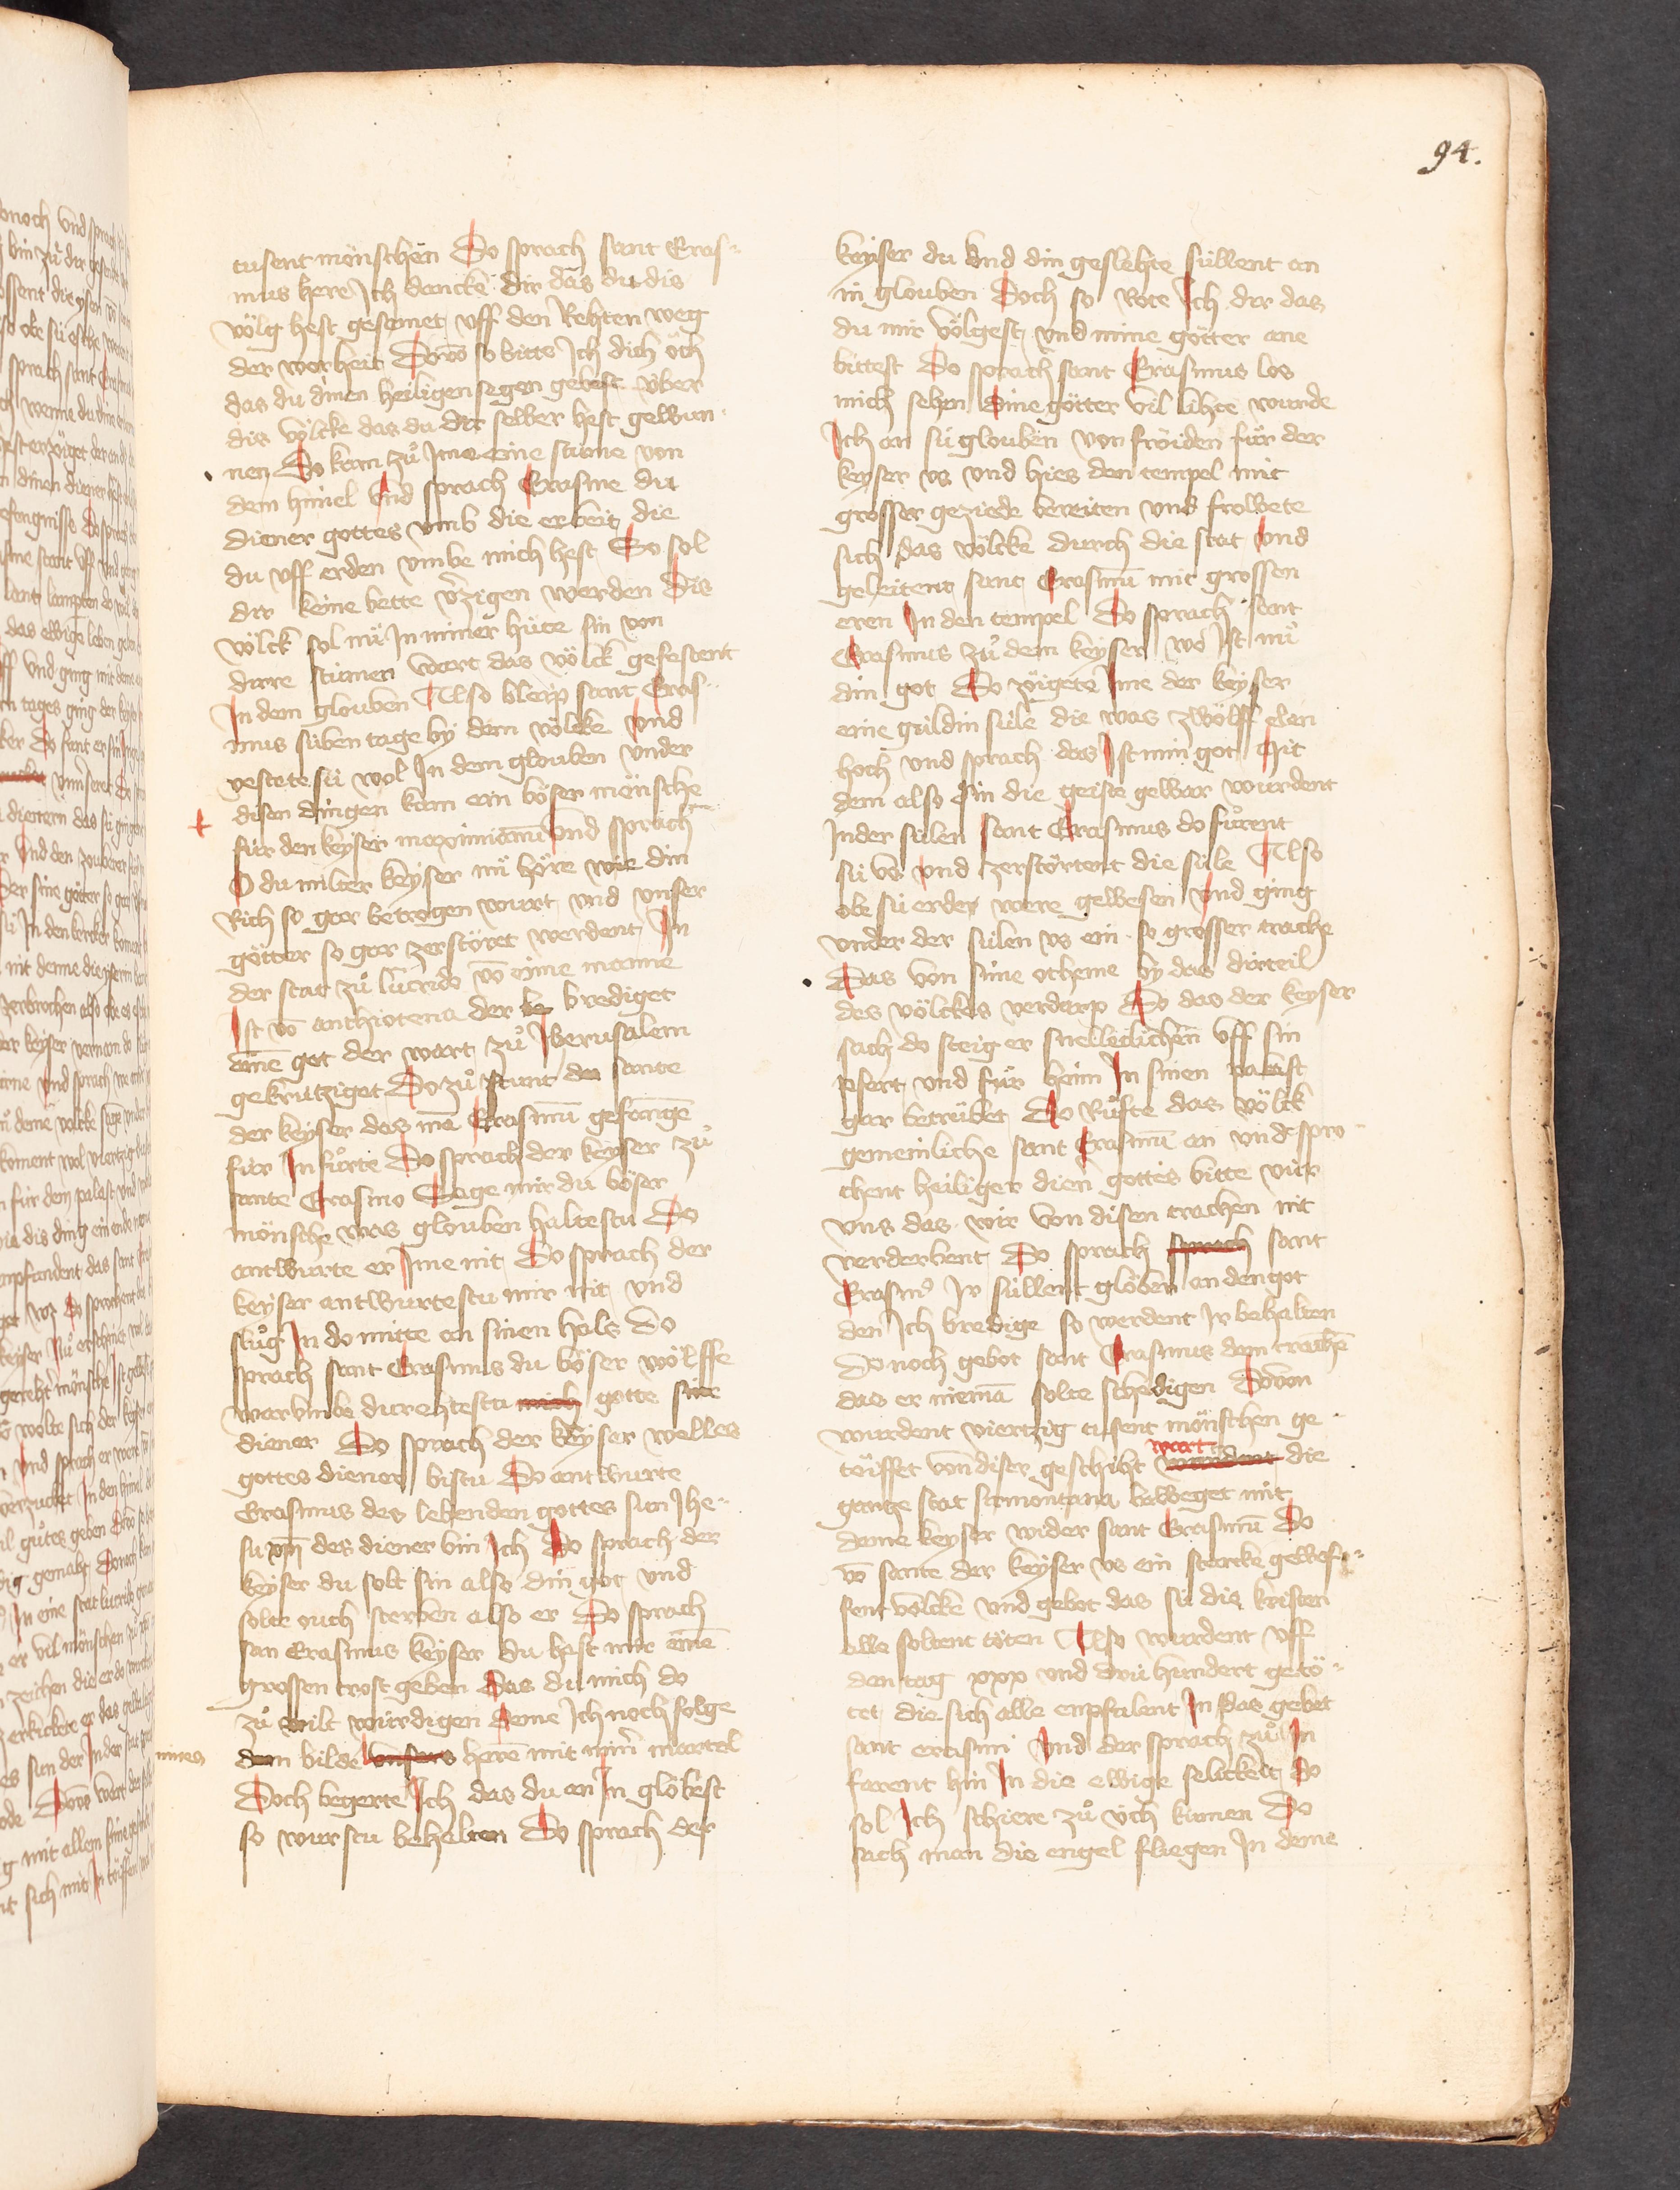 94.
tusent mönschen Do sprach sant Eras-
mus here Ich dancke dir das du dis
völg hest gesamet uff den Rehten weg
der worheit Dovō so bitte Ich dich öch
das du dinen heiligen segen gebest über
dis völcke das du dir selber hest gewun-
nen Do kam zů Ime eine stime von
dem himel Und sprach Erasme du
diener gottes umb die erbeit die
du uff erden umbe mich hest So sol
dir keine bette v̄zigen werden Dis
völck sol nü In miner hüte sin von
dirre stimen wart das völck gefestent
In dem glouben Also bleip sant Eras-
mus süben tage by dem völcke Und
vestete sü wol In dem glouben under
disen dingen kam ein böser mönsche
für den keyser maximianū Und sprach
O du milter keyser nü höre wie din
Rich so gar betrogen wurt und unser
götter so gar zerstöret werdent In
der stat zů lucrido vō eime manne
Ist vō anthiotena der be brediget
einē got der wart zů Iherusalem
gekrützіget Do zů stunt do sante
der keyser das mā Erasmū gefangē
für In fůrte Do sprach der keyser zů
sante Erasmo Sage mir du böser
mönsche was glouben haltestu Do
antwurte er Ime nit Do sprach der
keyser antwurtestu mir nit und
slůg In do mitte an sinen hals Do
sprach sant Erasmus du böser wölffe
warumbe durehtestu mich gotte sine
diener Do sprach der keyser welles
gottes diener bistu Do antwurte
Erasmus des lebenden gottes sun Ihe-
su xp̄i des diener bin Ich Do sprach der
keyser du solt sin also din got und
solt ouch sterben also er Do sprach
san Erasmus keyser du hast mir einē
grossen trost geben Das du mich do
zů wilt würdigen deme Ich noch folge
dem bilde unsers herē mit minr̄ martel
mines
Doch begerte Ich das du an In glöbest
so wurstu behalten Do sprach der
keyser du und din geslehte süllent an
in glouben Doch so Rote Ich dir das
du mir völgest und mine götter ane
bittest Do sprach sant Erasmus los
mich sehen dine götter vil lihte wurde
Ich an sü glouben von fröiden fůr der
keyser us und hies den tempel mit
grosser geziede bereiten und frowete
sich das völcke durch die stat Und
geleitent sant Erasmū mit grossen
eren In den tempel Do sprach sant
Erasmus zů dem keyser wo Ist nů
din got Do zöigete Ime der keyser
eine guldin süle die was zwölff elen
hoch und sprach das Ist min got Mit
dem also sin die geiste gewar wurdent
In der sülen sant Erasmus do fůrent
sü us und zerstörtent die süle Also
obe sü erden were gewesen Und ging
under der sülen us ein so grosser trache
Das von sime otheme by das dirteil
des völckes verdarp Do das der keyser
sach do steig er snelleclichen uff sin
pfert und fůr heim In sinen palast
gar betrübet Do Růfte das völck
gemeinliche sant Erasmū an und spro-
chent heiliger dien gottes bitte vür
uns das wir von disen trachen nit
verderbent Do sprach sprach sant
Erasmꝰ Ir süllent glöben an den got
den Ich bredige so werdent Ir behalten
Do noch gebot sant Erasmus dem trachē
das er niemā solte schedigen Dovon
wurdent viertzig tusent mönschen ge-
töiffet von diser geschiht wurdent wart die
gantze stat sirmontana beweget mit
deme keyser wider sant Erasmū Do
vō sante der keyser us ein starcke gewof-
fent völcke und gebot das sü dis kristen
alle soltent töten Also wurdent uff
den tag xxx und drü hundert getö-
tet die sich alle enpfulent In das gebet
sant erasmi Und der sprach zů In
farent hin In die ewige selickeit So
sol Ich schiere zů üch kumen Do
sach man die engel fliegen In deme